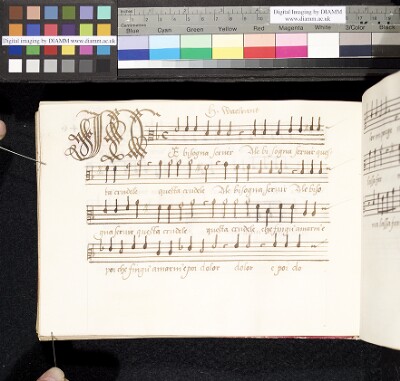 Digital imaging by DIAMM www.diamm.ac.uk
Digital imaging by DIAMM
www.diamm.ac.uk
Blue Cyan Green Yellow Red Magenta White 3/Color Black
E bisogna servir Me bisogna servir
sta crudele questa crudele Me bisogna servir Me biso
gna servire questa crudele questa crudele che fing' amarm'e
poi che fing' amarm'e poi dolor dolor e poi do